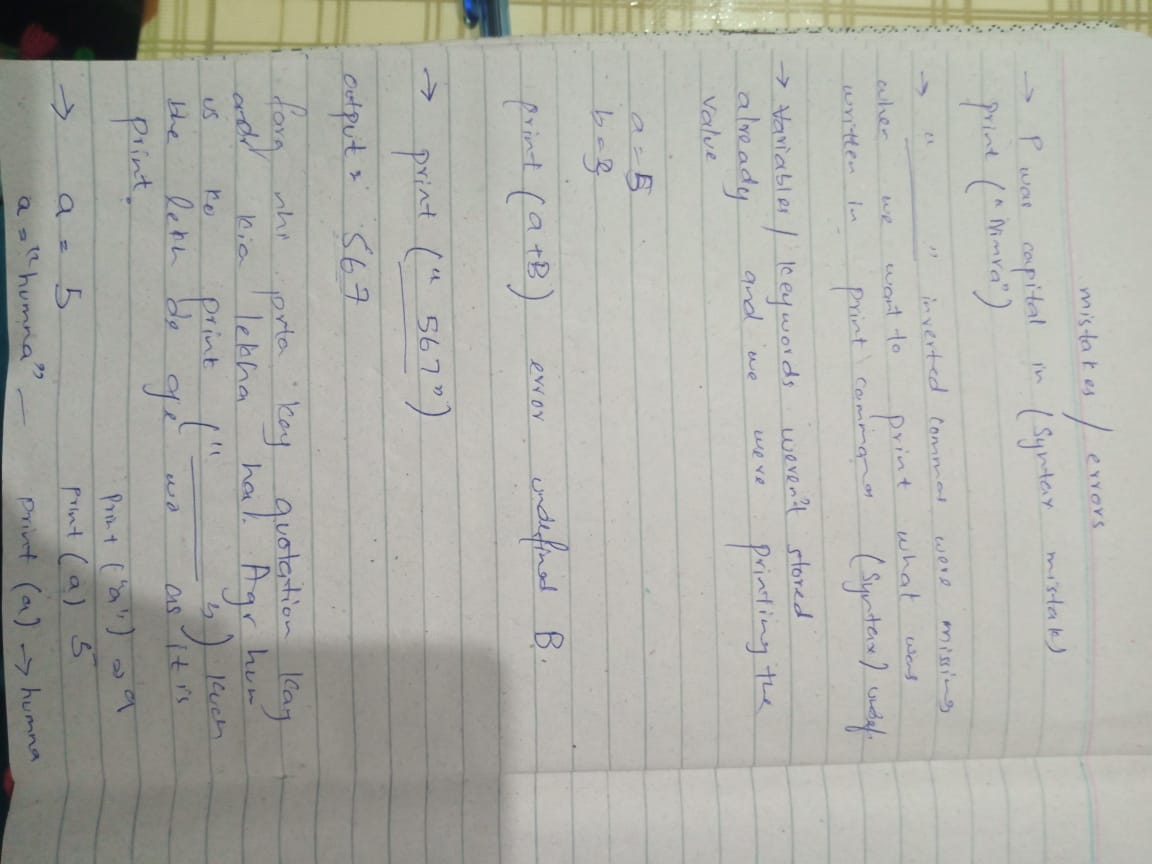 mistakes / errors
→ P was capital in (Syntax mistake)
print ("Nimra")
→ " ______ " inverted commas were missing
when we want to print what was
written in print command (Syntax) undef.
→ Variables / keywords weren't stored
already and we were printing the
value
a = 5
print (a+B) error undefined B.
→ print (" 567")
output: 567
farq nhi prta kay quotation kay
andr kia lekha hai. Agr hum
is ko print (" ______ ") kuch
the lekh de gye wo as it is
print.
print ("a") → a
→ a = 5 print (a) 5
a = "humna" — print (a) → humna